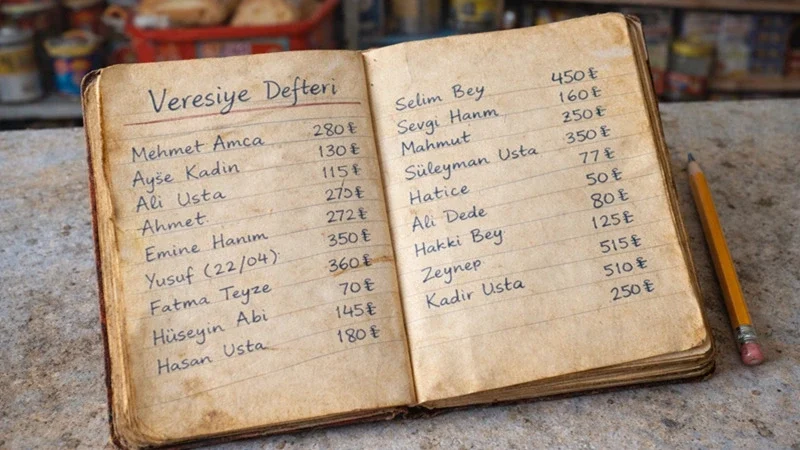 Veresiye Defteri
Mehmet Amca 280₺
Ayşe Kadin 130₺
Ali Usta 115₺
Ahmet 275₺
Emine Hanım 272₺
Yusuf (22/04) 350₺
Fatma Teyze 360₺
70₺
Hüseyin Abi 145₺
Hasan Usta 180₺
Selim Bey 450₺
Sevgi Hanm 160₺
Mahmut 250₺
Süleyman Usta 350₺
77₺
Hatice 50₺
Ali Dede 80₺
Hakki Bey 125₺
Zeynep 515₺
Kadir Usta 510₺
250₺